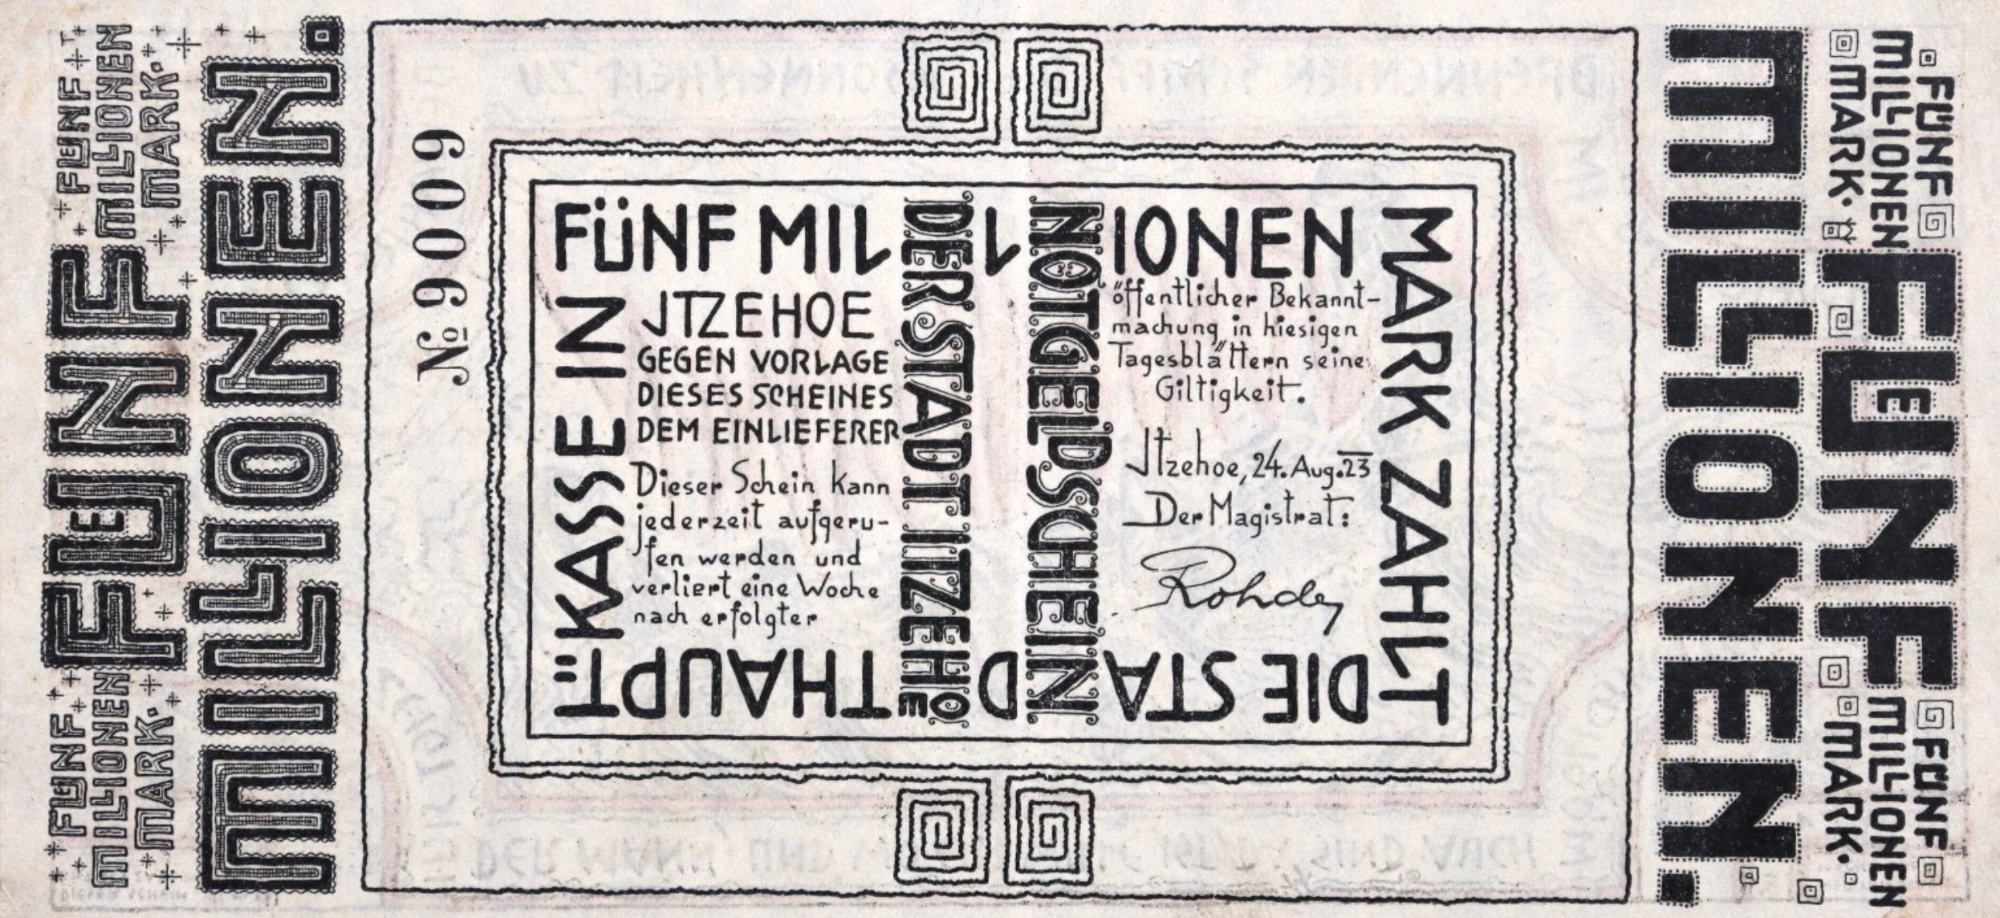 FÜNF
MILLIONEN
MARK.
FÜNF
MILLIONEN.
FÜNF
MILLIONEN
MARK.
№ 9009
NOTGELDSCHEIN
DER STADT ITZEHOE
FÜNF MILLIONEN
MARK ZAHLT
DIE STADTHAUPT=
KASSE IN
JTZEHOE
GEGEN VORLAGE
DIESES SCHEINES
DEM EINLIEFERER
Dieser Schein kann
jederzeit aufgeru-
fen werden und
verliert eine Woche
nach erfolgter
öffentlicher Bekannt-
machung in hiesigen
Tagesblättern seine
Giltigkeit.
Jtzehoe, 24. Aug. 23
Der Magistrat:
Rohde
FÜNF
MILLIONEN
MARK.
FÜNF
MILLIONEN.
FÜNF
MILLIONEN
MARK.